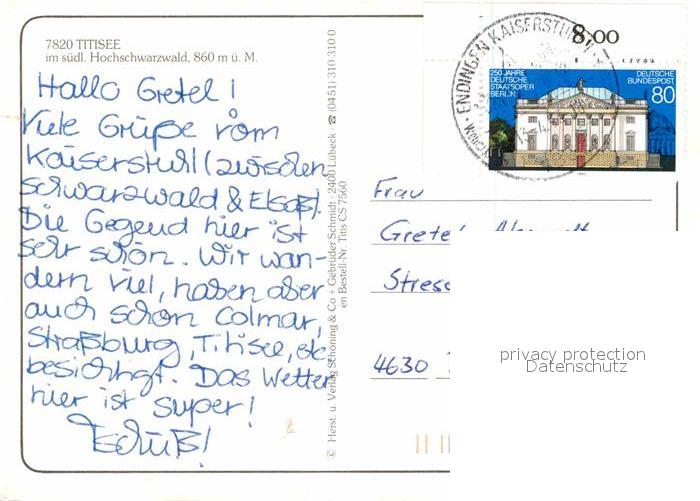 7820 TITISEE
im südl. Hochschwarzwald, 860 m ü. M.
Hallo Gretel!
Viele Grüße vom
Kaiserstuhl (zwischen
Schwarzwald & Elsaß).
Die Gegend hier ist
sehr schön. Wir wan-
dern viel, haben aber
auch schon Colmar,
Straßburg, Titisee, etc
besichtigt. Das Wetter
hier ist super!
Tschüß!
© Herst. u. Verlag Schöning & Co + Gebrüder Schmidt · 2400 Lübeck ☎ (0451) 310 310 0
en Bestell-Nr. Titis CS 7560
8,00
ENDINGEN KAISERSTUHL
250 JAHRE
DEUTSCHE
STAATSOPER
BERLIN
DEUTSCHE
BUNDESPOST
80
Frau
Gretel
4630
privacy protection
Datenschutz